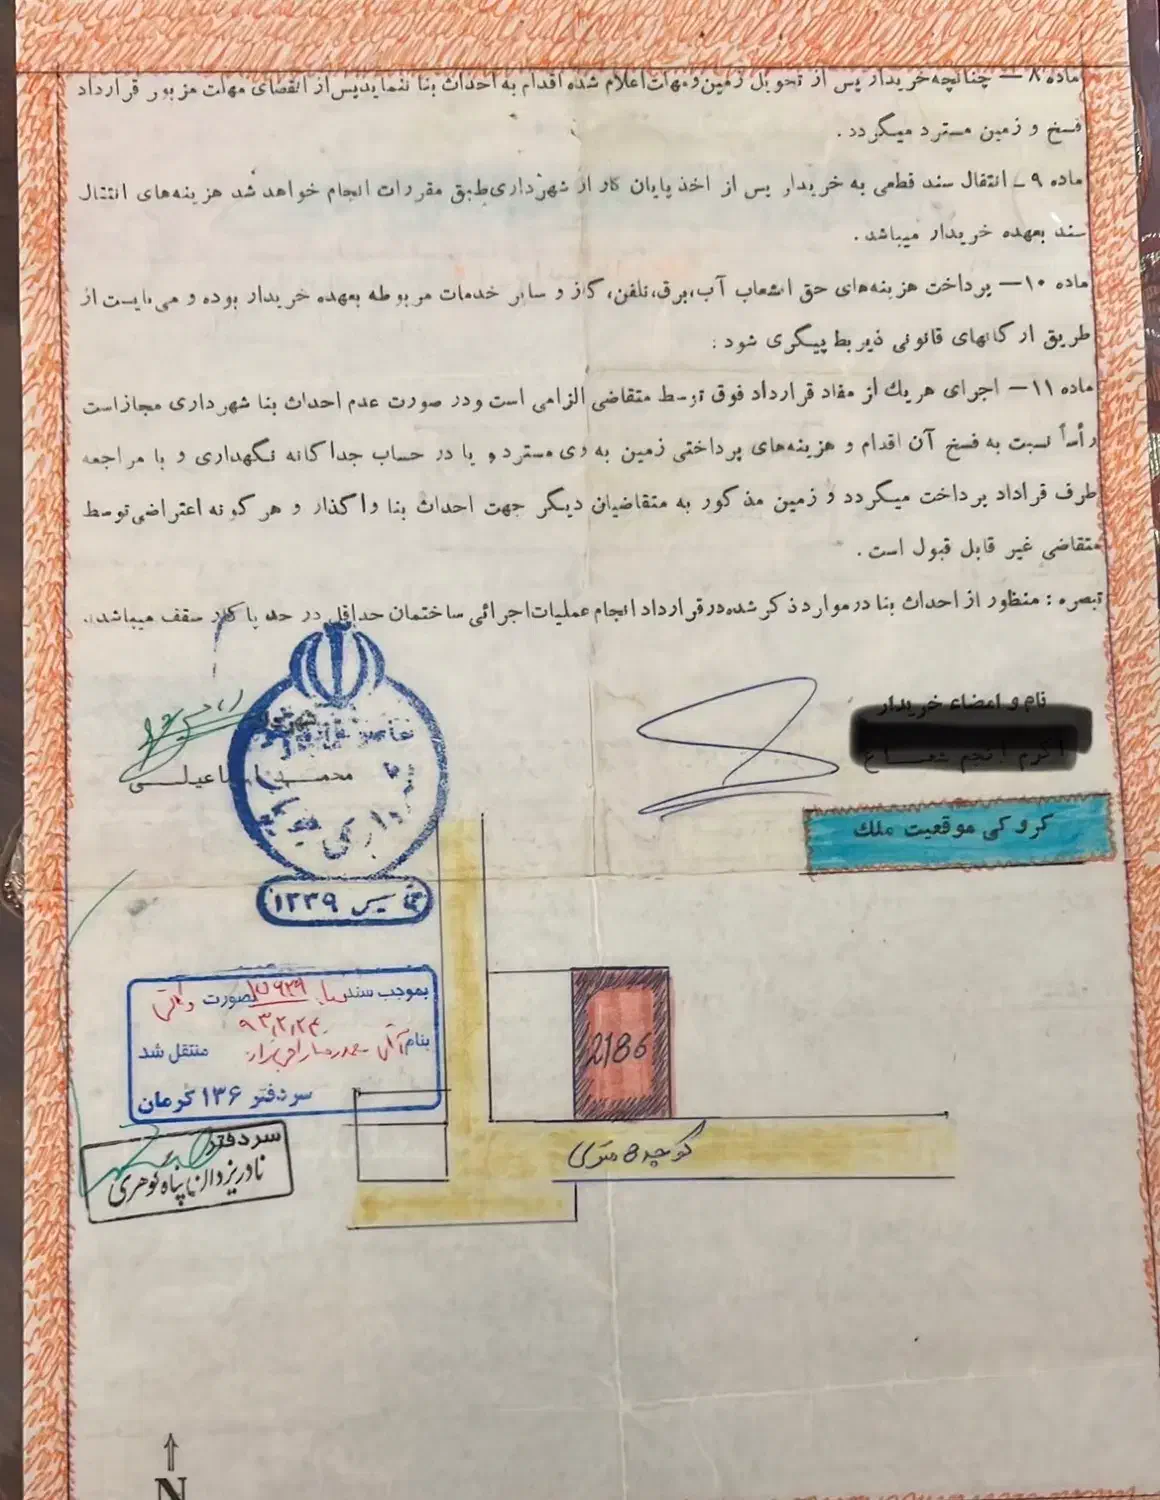 ماده ۸ — چنانچه خریدار پس از تحویل زمین و مهلت اعلام شده اقدام به احداث بنا ننماید پس از انقضای مهلت مزبور قرارداد
فسخ و زمین مسترد میگردد .
ماده ۹ ـ انتقال سند قطعی به خریدار پس از اخذ پایان کار از شهرداری طبق مقررات انجام خواهد شد هزینه‌های انتقال
سند بعهده خریدار میباشد .
ماده ۱۰ — پرداخت هزینه‌های حق انشعاب آب،برق،تلفن،گاز و سایر خدمات مربوطه بعهده خریدار بوده و می‌بایست از
طریق ارگانهای قانونی ذیربط پیگیری شود :
ماده ۱۱ — اجرای هریك از مفاد قرارداد فوق توسط متقاضی الزامی است و در صورت عدم احداث بنا شهرداری مجاز است
رأساً نسبت به فسخ آن اقدام و هزینه‌های پرداختی زمین به وی مسترد و یا در حساب جداگانه نگهداری و با مراجعه
طرف قراداد پرداخت میگردد و زمین مذکور به متقاضیان دیگر جهت احداث بنا واگذار و هرگونه اعتراضی توسط
متقاضی غیر قابل قبول است .
تبصره : منظور از احداث بنا در موارد ذکر شده در قرارداد انجام عملیات اجرائی ساختمان حداقل در حد پاکار سقف میباشد.
نام و امضاء خریدار
محمد
کروکی موقعیت ملك
تاسیس ۱۳۳۹
بموجب سند بصورت
۹۳,۲,۲۴
بنام آقای منتقل شد
سردفتر ۱۳۶ کرمان
سردفتر
2186
کوچه 8 متری
N